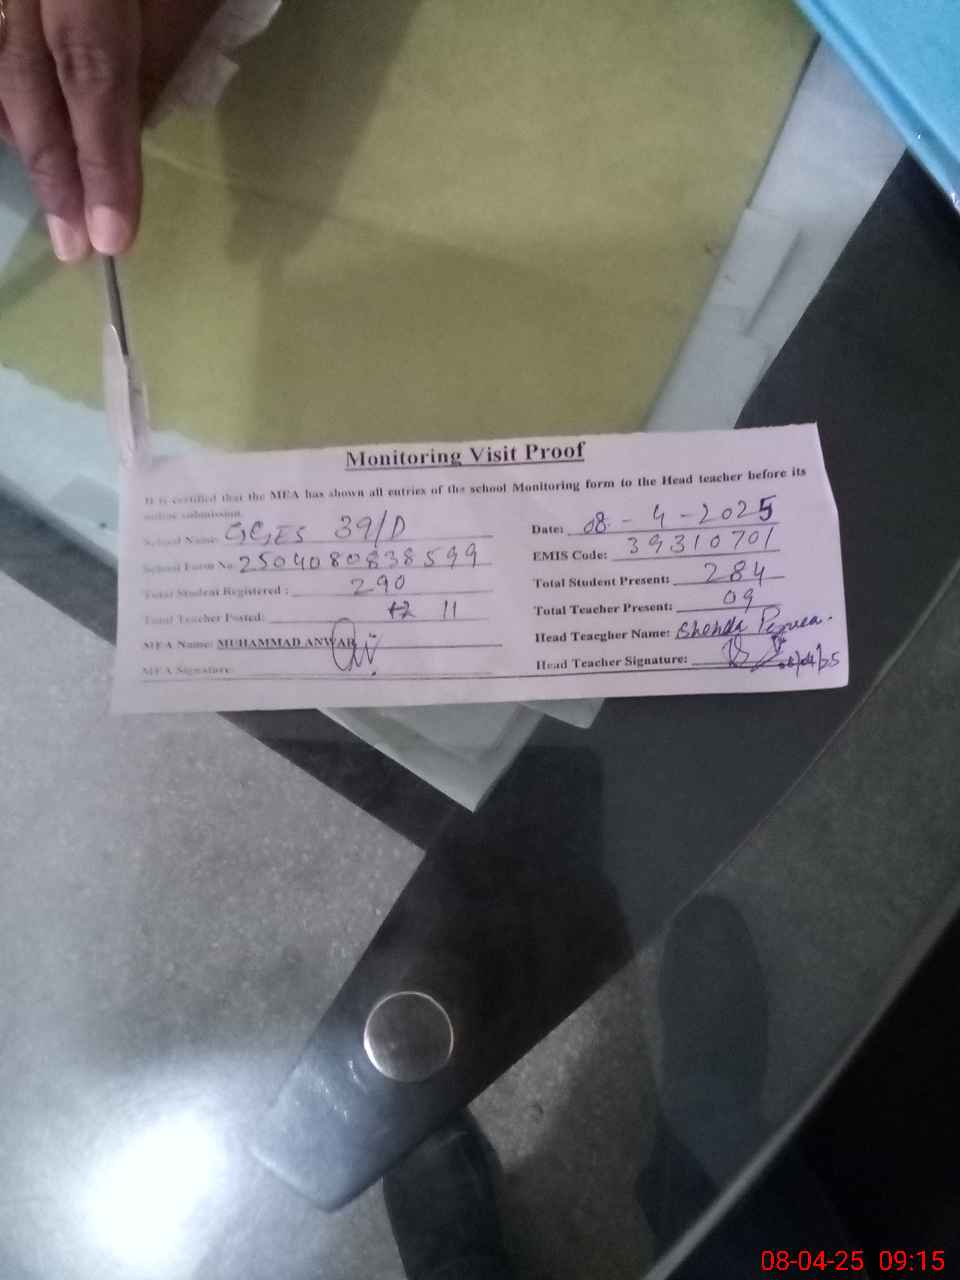 Monitoring Visit Proof
It is certified that the MEA has shown all entries of the school Monitoring form to the Head teacher before its
online submission.
School Name: GGES 39/D
Date: 08-4-2025
School Form No. 2504080838599
EMIS Code: 39310701
Total Student Registered : 290
Total Student Present: 284
Total Teacher Posted: 11
Total Teacher Present: 09
MEA Name: MUHAMMAD ANWAR
Head Teacgher Name:
MEA Signature:
Head Teacher Signature: 08/04/25
08-04-25 09:15